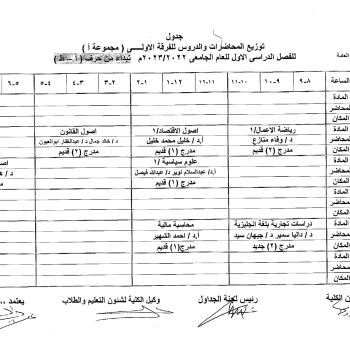 جدول
توزيع المحاضرات والدروس للفرقة الاولى ( مجموعة أ )
للفصل الدراسى الاول للعام الجامعى ٢٠٢٣/٢٠٢٢م تبداء من حرف
العادة
الساعة ٩-٨ ١٠-٩ ١١-١٠ ١٢-١١ ١-١٢ ٢-١ ٣-٢ ٤-٣ ٥-٤ ٦-٥
المادة
محاضر
المكان
المادة رياضة الاعمال/١ اصول الاقتصاد/١ اصول القانون
محاضر د / وفاء منازع أ.د / خليل محمد خليل د / خالد جمال د / عبدالغفار ابوالعيون
المكان مدرج (٢) قديم مدرج (١) قديم مدرج (٢) قديم
المادة علوم سياسية /١
محاضر أ.د/ عبدالسلام نوير د/ عبدالله فيصل
المكان مدرج (١) قديم
المادة
محاضر
المكان
المادة دراسات تجارية بلغة انجليزية محاسبة مالية
محاضر د / داليا سمير د / جيهان سيد أ.د / احمد الشهير
المكان مدرج (٢) جديد مدرج (١) قديم
الكلية رئيس لجنة الجداول وكيل الكلية لشئون التعليم والطلاب يعتمد